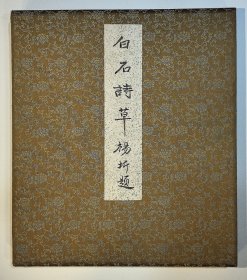 白石詩草楊圻題